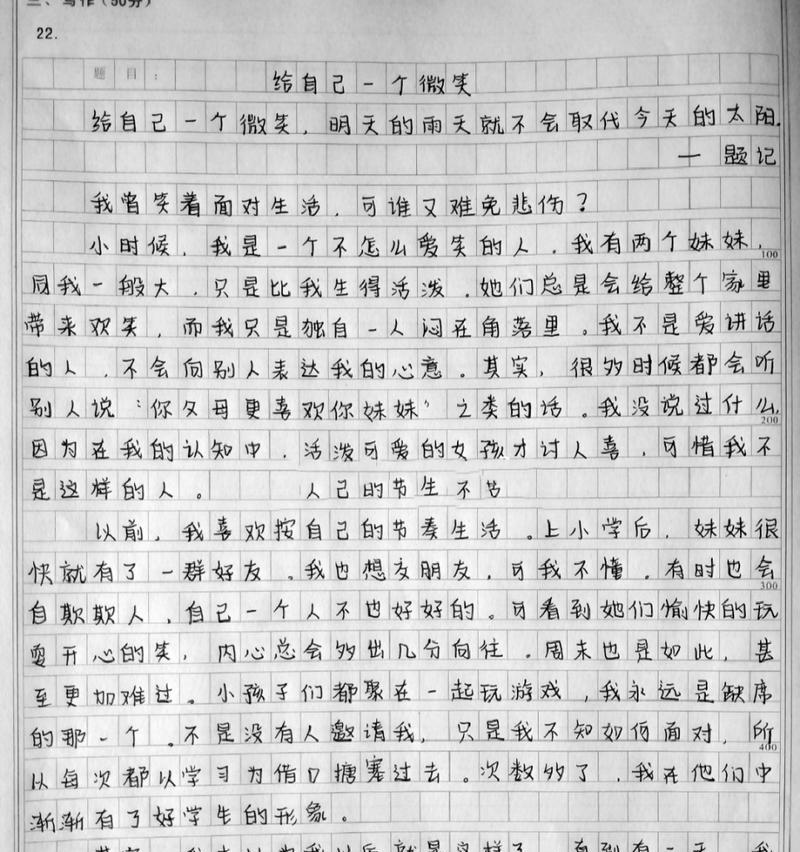 三、写作（50分）
22.
题目：给自己一个微笑
给自己一个微笑，明天的雨天就不会取代今天的太阳.
— 题记
我曾笑着面对生活，可谁又难免悲伤？
小时候，我是一个不怎么爱笑的人．我有两个妹妹，
100
同我一般大．只是比我生得活泼．她们总是会给整个家里
带来欢笑，而我只是独自一人闷在角落里。我不是爱讲话
的人，不会向别人表达我的心意。其实，很多时候都会听
别人说“你父母更喜欢你妹妹”之类的话。我没说过什么，
200
因为在我的认知中．活泼可爱的女孩才讨人喜，可惜我不
是这样的人。
以前，我喜欢按自己的节奏生活。上小学后，妹妹很
快就有了一群好友。我也想交朋友，可我不懂．有时也会
300
自欺欺人，自己一个人不也好好的。可看到她们愉快的玩
耍开心的笑，内心总会多出几分向往．周末也是如此，甚
至更加难过。小孩子们都聚在一起玩游戏，我永远是缺席
的那一个。不是没有人邀请我，只是我不知如何面对，所
400
以每次都以学习为借口搪塞过去。次数多了，我在他们中
渐渐有了好学生的形象。